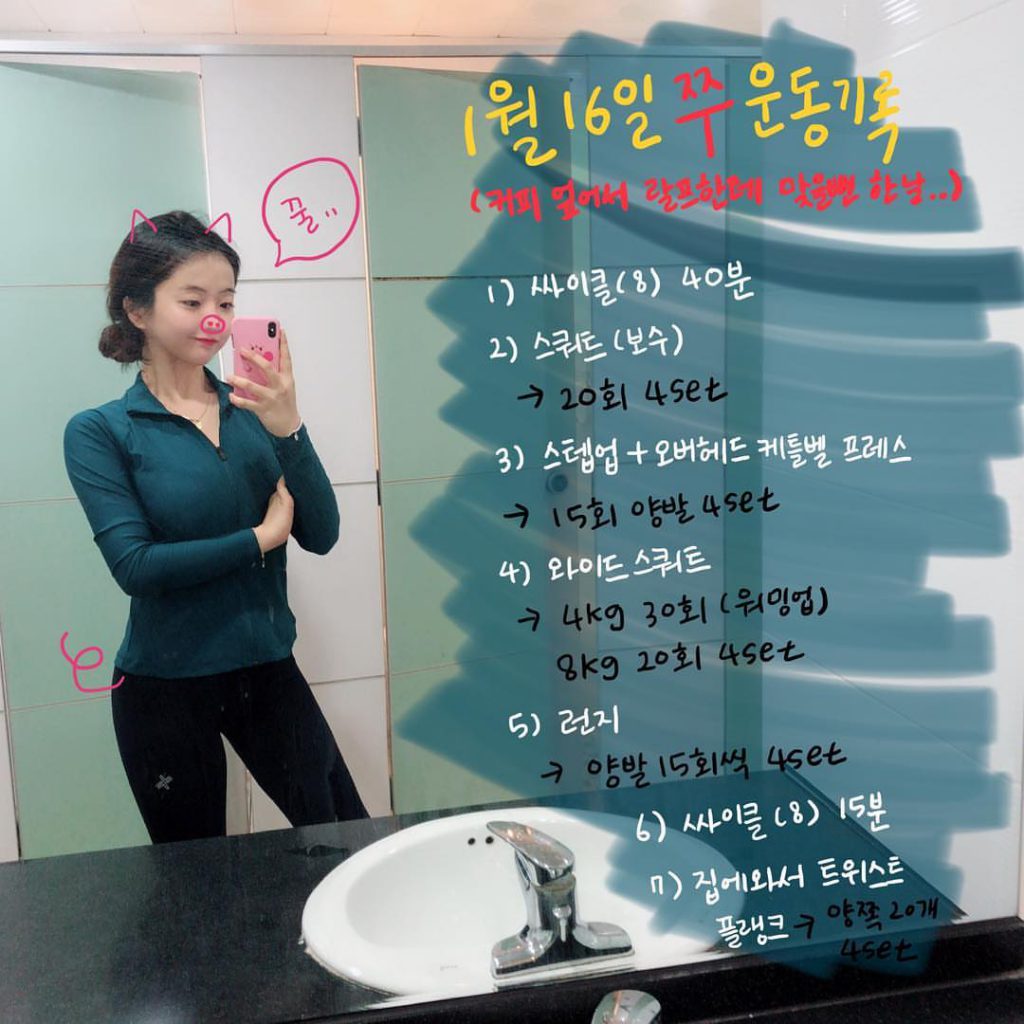 꿀..
1월 16일 쭈 운동기록
(커피 옆어서 랄프한테 맞을뻔 한 날..)
1) 싸이클(8) 40분
2) 스쿼트(보수)
→ 20회 4set
3) 스텝업 + 오버헤드 케틀벨 프레스
→ 15회 양발 4set
4) 와이드 스쿼트
→ 4kg 30회 (워밍업)
8kg 20회 4set
5) 런지
→ 양발 15회씩 4set
6) 싸이클 (8) 15분
7) 집에와서 트위스트
플랭크 → 양쪽 20개
4set